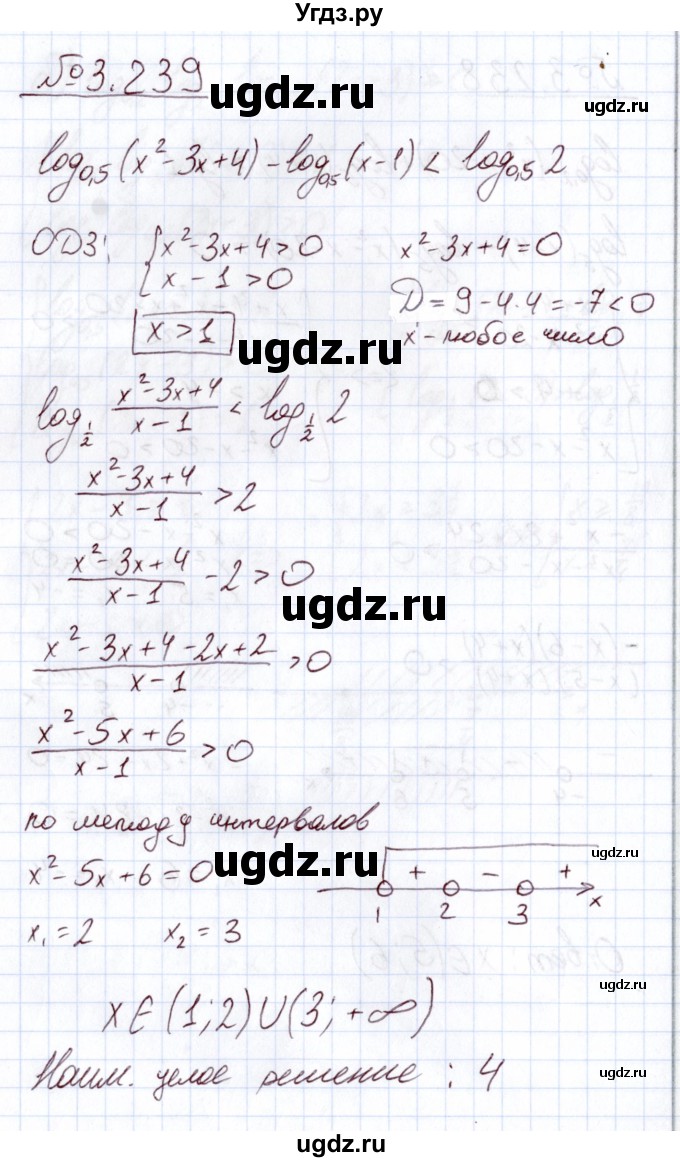 Угдз.ру
№3.239
ugdz.ru
ugdz.ru
log₀,₅(x² - 3x + 4) - log₀,₅(x - 1) < log₀,₅ 2
ОДЗ: { x² - 3x + 4 > 0 x² - 3x + 4 = 0
x - 1 > 0 D = 9 - 4·4 = -7 < 0
x > 1 x - любое число
ugdz.ru
ugdz.ru
log_{1/2} (x² - 3x + 4)/(x - 1) < log_{1/2} 2
(x² - 3x + 4)/(x - 1) > 2
(x² - 3x + 4)/(x - 1) - 2 > 0
ugdz.ru
ugdz.ru
(x² - 3x + 4 - 2x + 2)/(x - 1) > 0
(x² - 5x + 6)/(x - 1) > 0
по методу интервалов
ugdz.ru
ugdz.ru
x² - 5x + 6 = 0 + - +
1 2 3 x
x₁ = 2 x₂ = 3
ugdz.ru
x ∈ (1; 2) ∪ (3; +∞)
Наим. целое решение : 4
ugdz.ru
ugdz.ru